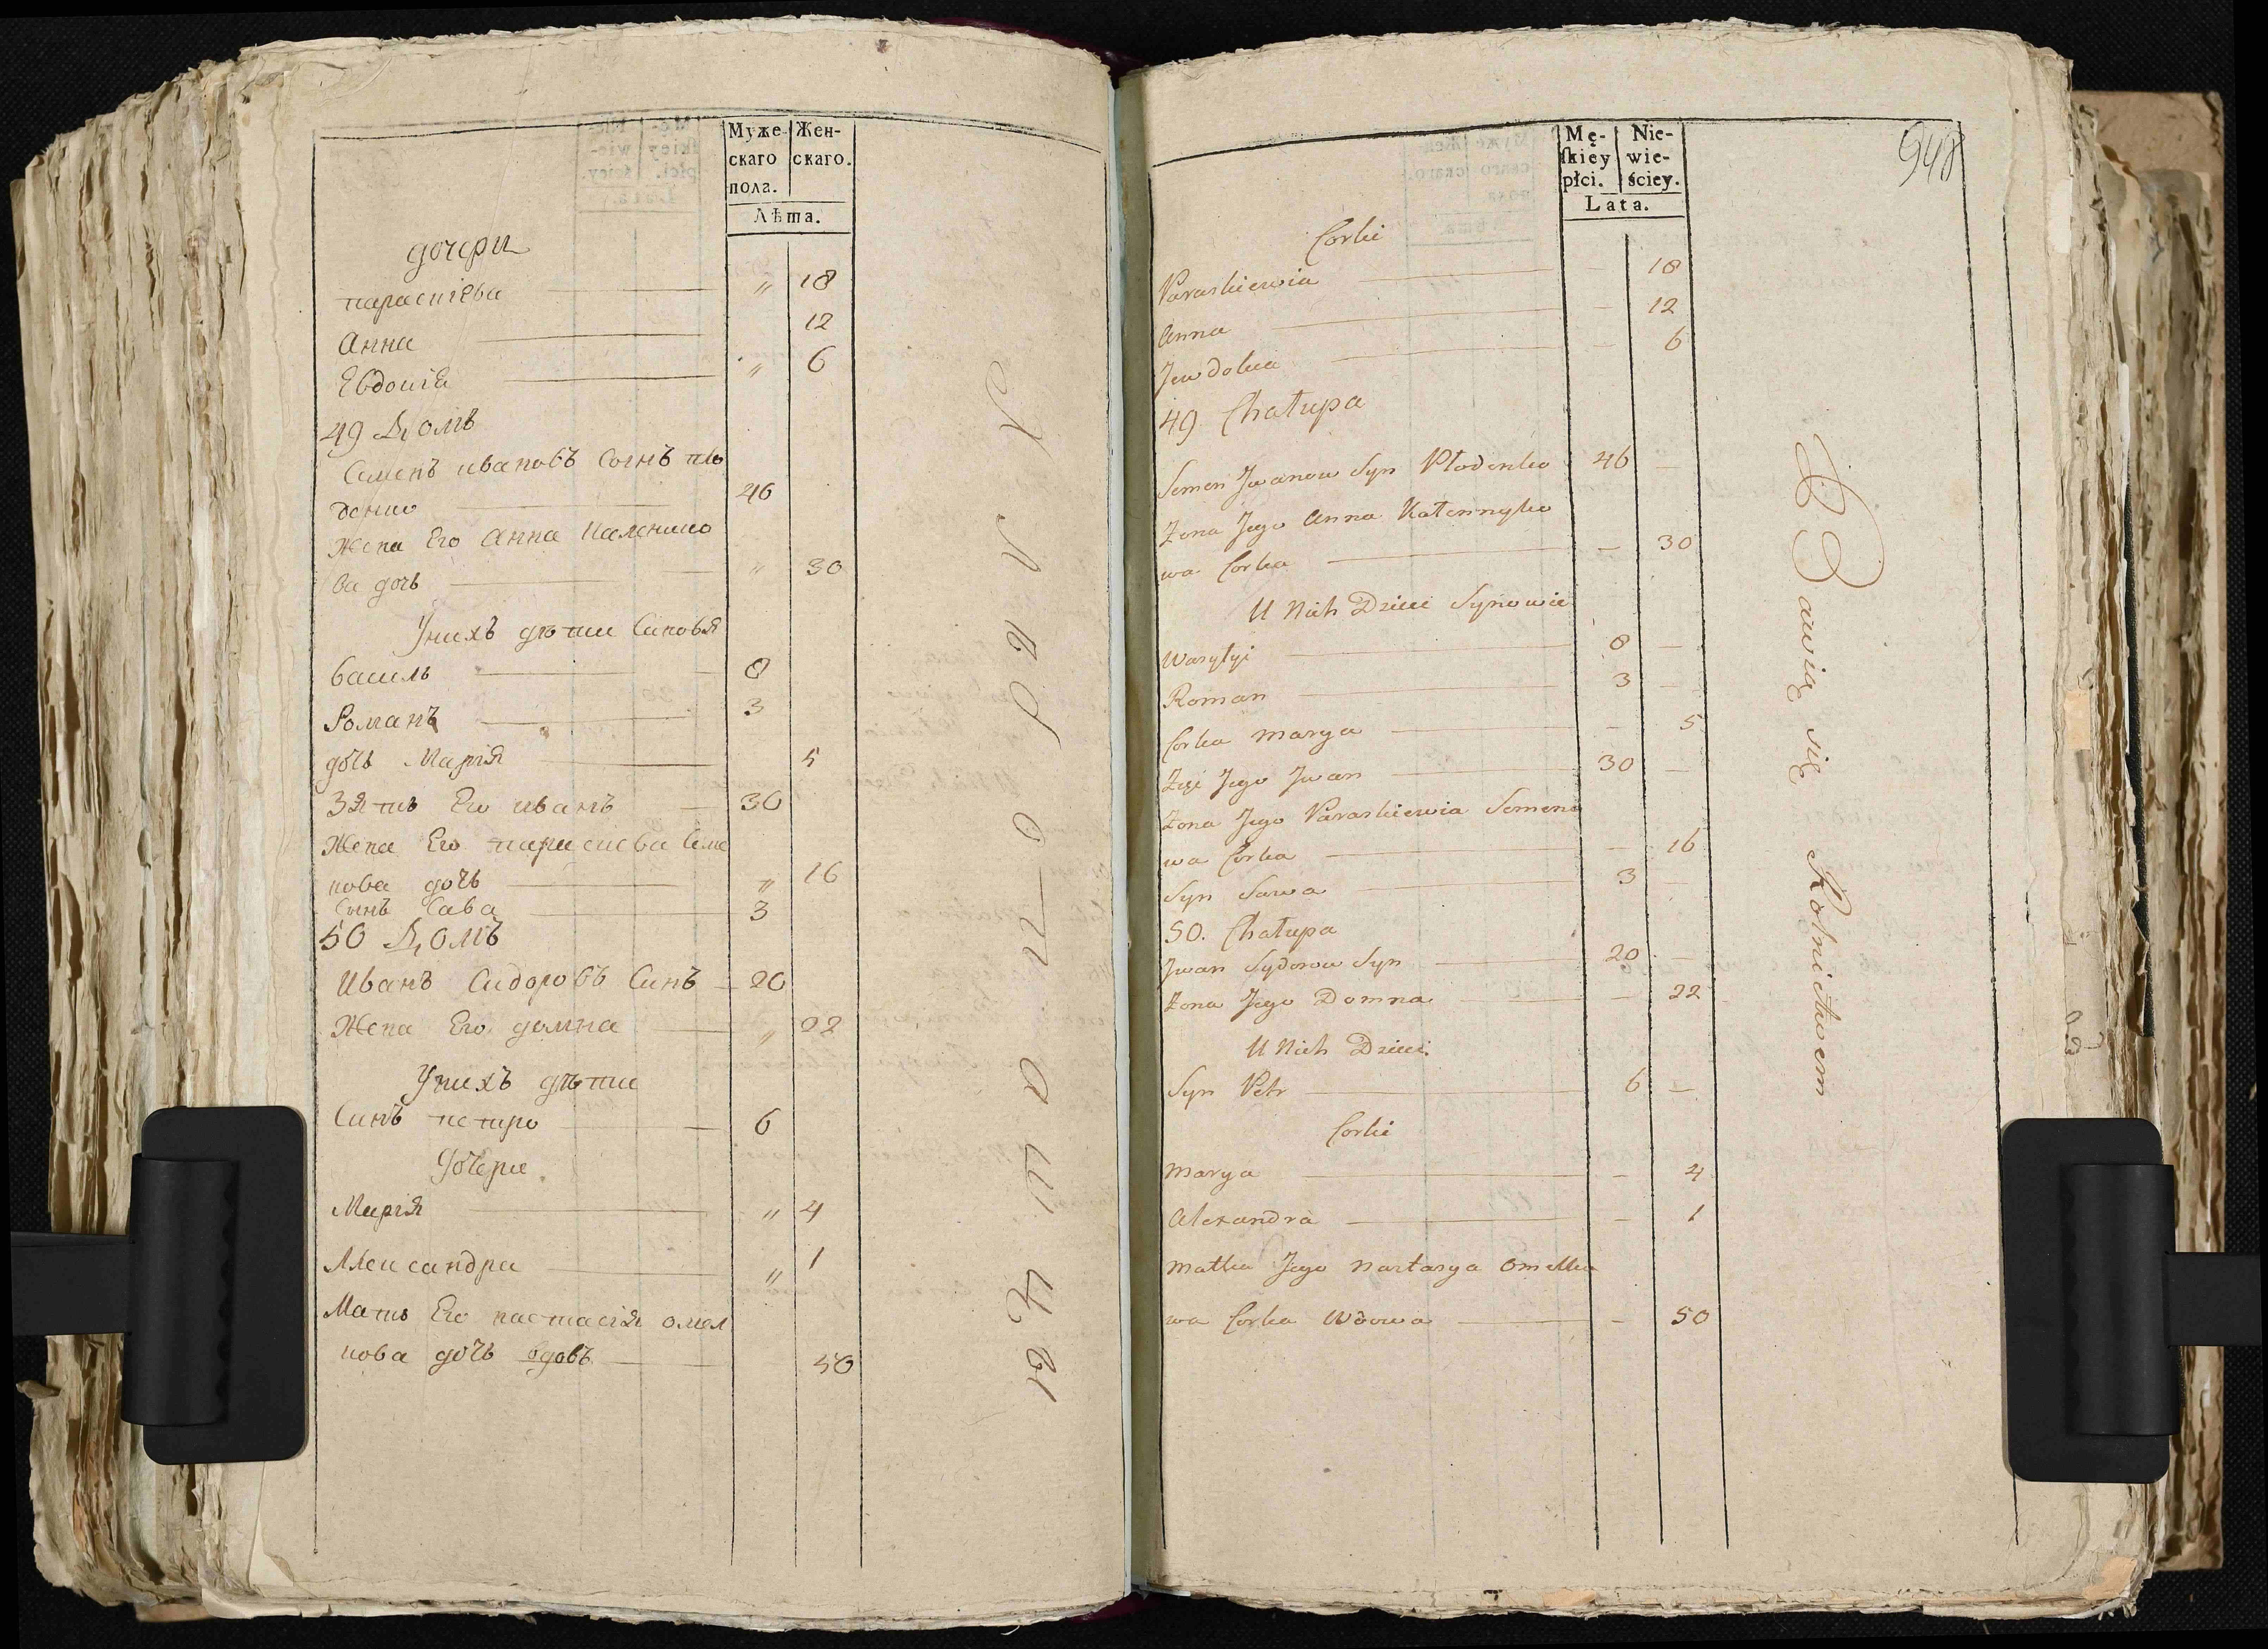 Муже- Жен-
скаго скаго.
пола.
Лѣта.
дочери
параскіева " 18
Анна 12
Евдокія " 6
49 Домъ
Семенъ ивановъ сынъ пло
денко 46
Жена Его Анна Каленико
ва дочь " 30
У нихъ дѣти Синовя
василь 8
Романъ 3
дочь Марія 5
Зять Его иванъ 30
Жена Его параскева Семе
нова дочь " 16
Сынъ Сава 3
50 Домъ
Иванъ Сидоровъ Синъ 20
Жена Его домна " 22
У нихъ дѣти
Синъ петро 6
Дочери
Марія " 4
Александра " 1
Мать Его настасія омел
кова дочь вдовъ 50
948
Mę- Nie-
skiey wie-
płci. ściey.
Lata.
Corki
Paraskiewia — 18
Anna — 12
Jewdokia — 6
49 Chałupa
Semen Jwanow Syn Płodenko 46 —
Żona Jego Anna Kałennyko
wa Corka — 30
U Nich Dzieci Synowie
Wasylyi 8 —
Roman 3 —
Corka Marya — 5
Zięć Jego Jwan 30 —
Żona Jego Paraskiewia Semeno
wa Corka — 16
Syn Sawa 3 —
50. Chałupa
Jwan Sydorow Syn 20 —
Żona Jego Domna — 22
U Nich Dzieci.
Syn Petr 6 —
Corki
Marya — 4
Alexandra — 1
Matka Jego Nastasya Omelko
wa Corka Wdowa — 50
Bawią się Rolnictwem